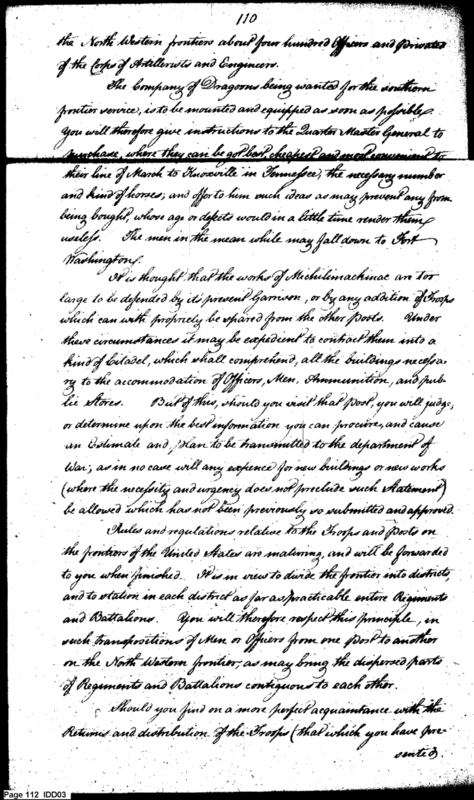 110
the North Western frontiers about four hundred Officers and Privates
of the Corps of Artillerists and Engineers.
The Company of Dragoons being wanted for the southern
frontier service, is to be mounted and equipped as soon as possible.
You will therefore give instructions to the Quarter Master General to
purchase, where they can be got best, cheapest and most convenient to
their line of March to Knoxville in Tennessee, the necessary number
and kind of horses; and offer to him such ideas as may prevent any from
being bought, whose age or defects would in a little time render them
useless. The men in the mean while may fall down to Fort
Washington.
It is thought that the works of Michilimackinac are too
large to be defended by it's present Garrison, or by any addition of Troops
which can with propriety be spared from the other Posts. Under
these circumstances it may be expedient to contract them into a
kind of Citadel, which shall comprehend, all the buildings necessa-
ry to the accommodation of Officers, Men, Ammunition, and pub-
lic Stores. But of this, should you visit that Post, you will judge,
or determine upon the best information you can procure, and cause
an Estimate and plan to be transmitted to the department of
War; as in no case will any expence for new buildings or new works
(where the necessity and urgency does not preclude such Statement)
be allowed which has not been previously so submitted and approved.
Rules and regulations relative to the Troops and Posts on
the frontiers of the United States are maturing, and will be forwarded
to you when finished. It is in view to divide the frontier into districts,
and to station in each district as far as practicable entire Regiments
and Battalions. You will therefore respect this principle, in
such transpositions of Men or Officers from one Post to another
on the North Western frontier, as may bring the dispersed parts
of Regiments and Battalions contiguous to each other.
Should you find on a more perfect acquaintance with the
Returns and distribution of the Troops (that which you have pre-
sented
Page 112 IDD03